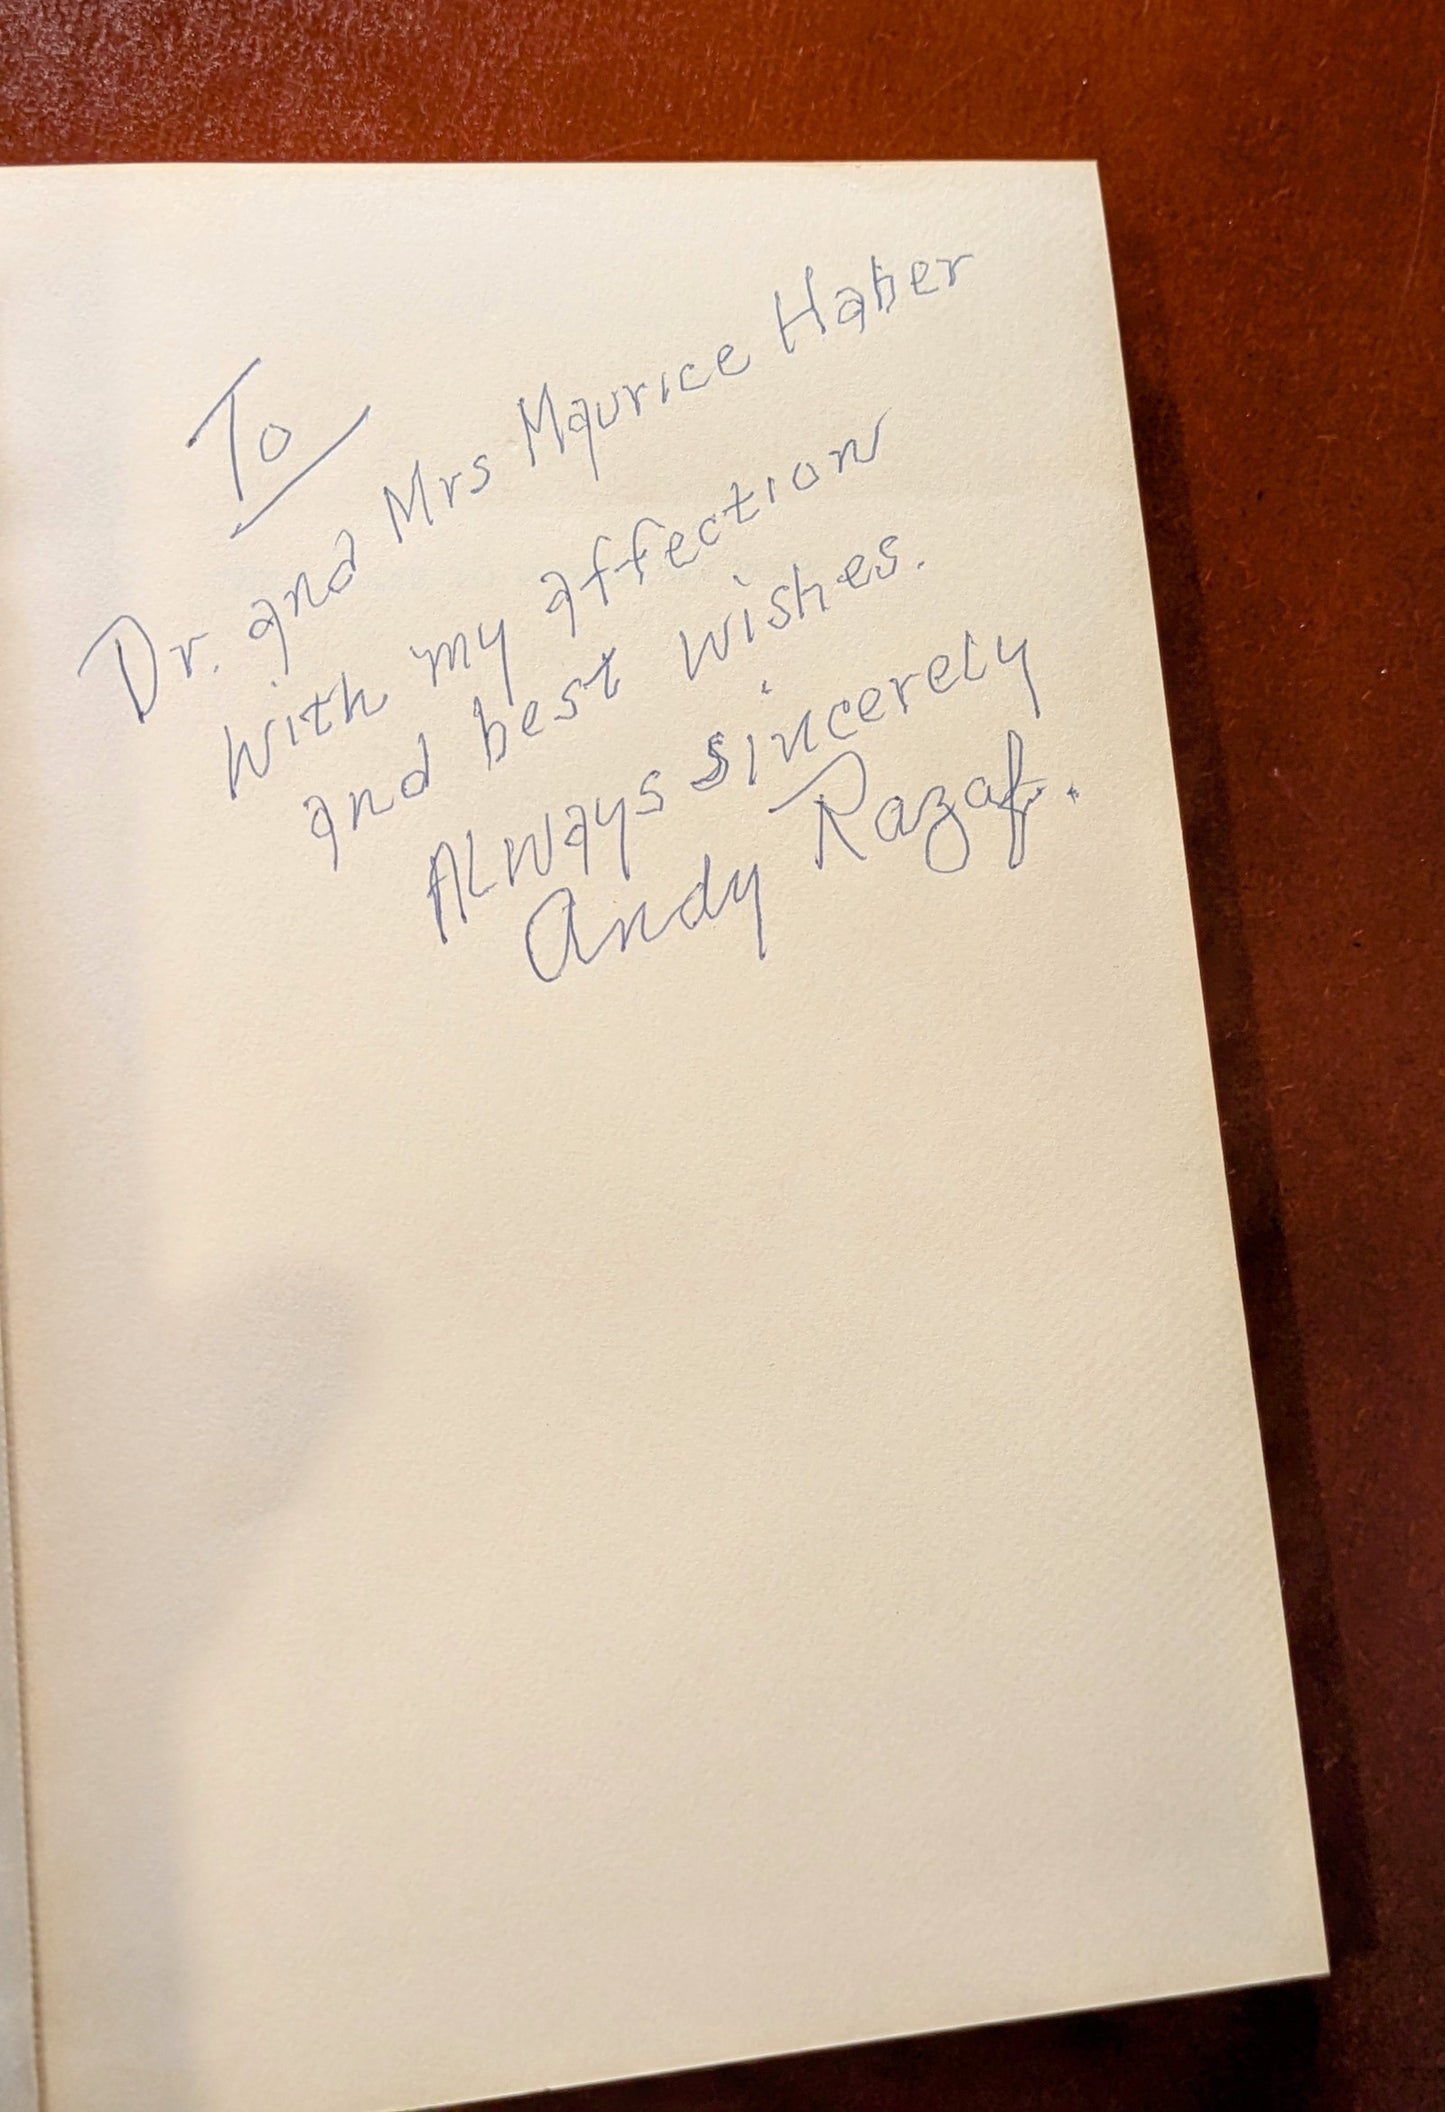 To
Dr. and Mrs Maurice Haber
With my affection
and best wishes.
Always sincerely
Andy Razaf.